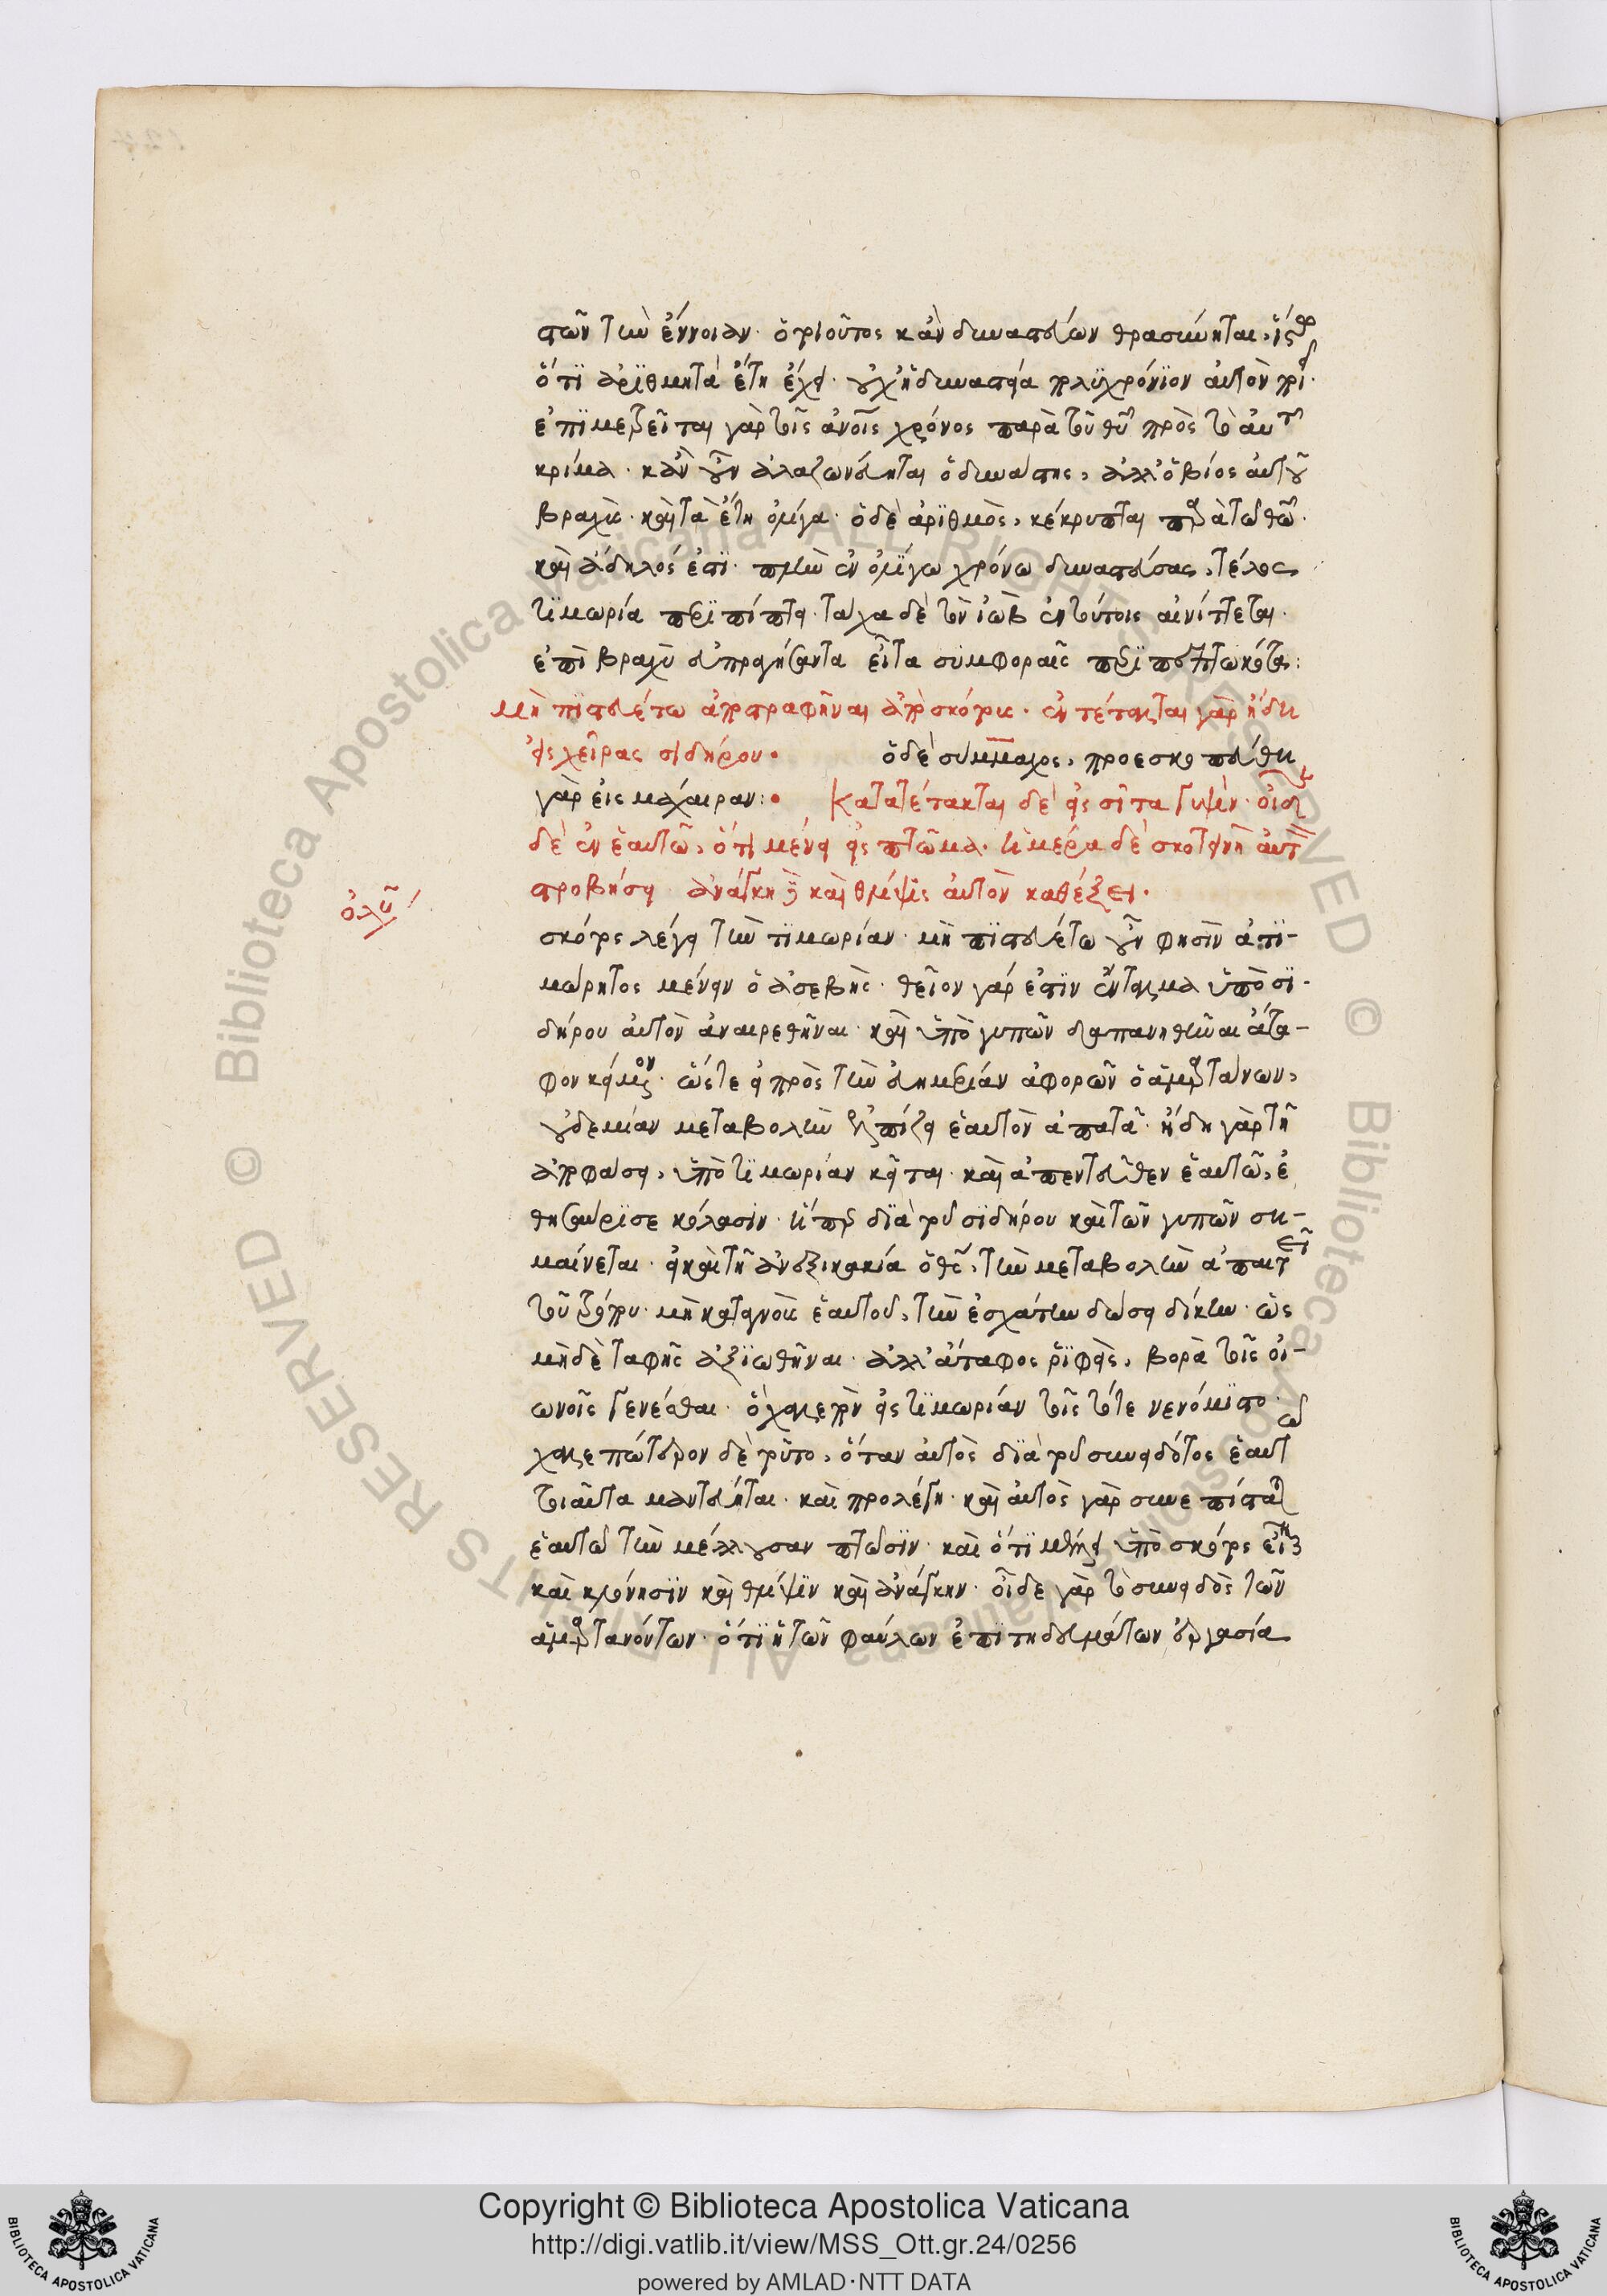 στῶν τὴν ἔννοιαν· ὁ τοιοῦτος κἂν δυναστεύων θρασύνηται, ἴστω
ὅτι ἀριθμητὰ ἔτη ἔχει· οὐχ ἡ δυναστεία πολυχρόνιον αὐτὸν ποιεῖ·
ἐπιμερίζεται γὰρ τοῖς ἀνοις χρόνος παρὰ τοῦ θυ πρὸς τὸ αὐτοῦ
κρίμα· κἂν οὖν ἀλαζονεύηται ὁ δυνάστης, ἀλλ' ὁ βίος αὐτοῦ
βραχὺς· καὶ τὰ ἔτη ὀλίγα· ὁ δὲ ἀριθμὸς, κέκρυπται παρὰ τῶ θω·
καὶ ἄδηλός ἐστι· πλὴν ἐν ὀλίγω χρόνω δυναστεύσας, τέλος
τιμωρία περιπίπτει· τάχα δὲ τὸν ἰὼβ ἐν τούτοις αἰνίττεται·
ἐπὶ βραχὺ εὐπραγήσαντα εἶτα συμφοραῖς περιπεπτωκότα:
μὴ πιστευέτω ἀποστραφῆναι ἀπὸ σκότους· ἐντέταλται γὰρ ἤδη
εἰς χεῖρας σιδήρου· ὁ δὲ σύμμαχος, προεσκοπεύθη
γὰρ εἰς μάχαιραν:· κατατέτακται δὲ εἰς σῖτα γυψὶν· οἶδεν
δὲ ἐν ἑαυτῶ, ὅτι μένει εἰς πτῶμα· ἡμέρα δὲ σκοτεινὴ αὐτὸν
στροβήσει ἀνάγκη δὲ καὶ θλίψις αὐτὸν καθέξει·
ὀλυ
σκότος λέγει τὴν τιμωρίαν· μὴ πιστευέτω οὖν φησὶν ἀτι-
μώρητος μένειν ὁ ἀσεβὴς· θεῖον γάρ ἐστιν ἔνταλμα ὑπὸ σι-
δήρου αὐτὸν ἀναιρεθῆναι· καὶ ὑπὸ γυπῶν δαπανηθῆναι ἄτα-
φον κείμενον· ὥστε εἰ πρὸς τὴν εὐημερίαν ἀφορῶν ὁ ἁμαρτάνων,
οὐδεμίαν μεταβολὴν ἐλπίζει ἑαυτὸν ἀπατᾶ· ἤδη γὰρ τῆ
ἀποφάσει, ὑπὸ τιμωρίαν κεῖται· καὶ ἀπεντεῦθεν ἑαυτῶ, ἐ
θησαύρισε κόλασιν· ἥπερ διὰ τοῦ σιδήρου καὶ τῶν γυπῶν ση-
μαίνεται· εἰ καὶ τῆ ἀνεξικακία ὁ θς, τὴν μεταβολὴν ἀπαιτεῖ
τοῦ χείρονος· μὴ καταγνοὺς ἑαυτοῦ, τὴν ἐσχάτην δώσει δίκην· ὡς
μὴ δὲ ταφῆς ἀξιωθῆναι· ἀλλ' ἄταφος ῥιφεὶς, βορὰ τοῖς οἰ-
ωνοῖς γενέσθαι· ὃ χαλεπὸν εἰς τιμωρίαν τοῖς τότε νενόμιστο·
χαλεπώτερον δὲ τοῦτο, ὅταν αὐτὸς διὰ τοῦ συνειδότος ἑαυτῶ
τοιαῦτα μαντεύηται· καὶ προλέγη· καὶ αὐτὸς γὰρ συνεπίσταται
ἑαυτῶ τὴν μέλλουσαν πτῶσιν· καὶ ὅτι μένει ὑπὸ σκότος εἶναι
καὶ κλόνησιν καὶ θλίψιν καὶ ἀνάγκην· οἶδε γὰρ τὸ συνειδὸς τῶν
ἁμαρτανόντων· ὅτι ἡ τῶν φαύλων ἐπιτηδευμάτων ἐργασία
Copyright © Biblioteca Apostolica Vaticana
http://digi.vatlib.it/view/MSS_Ott.gr.24/0256
powered by AMLAD·NTT DATA